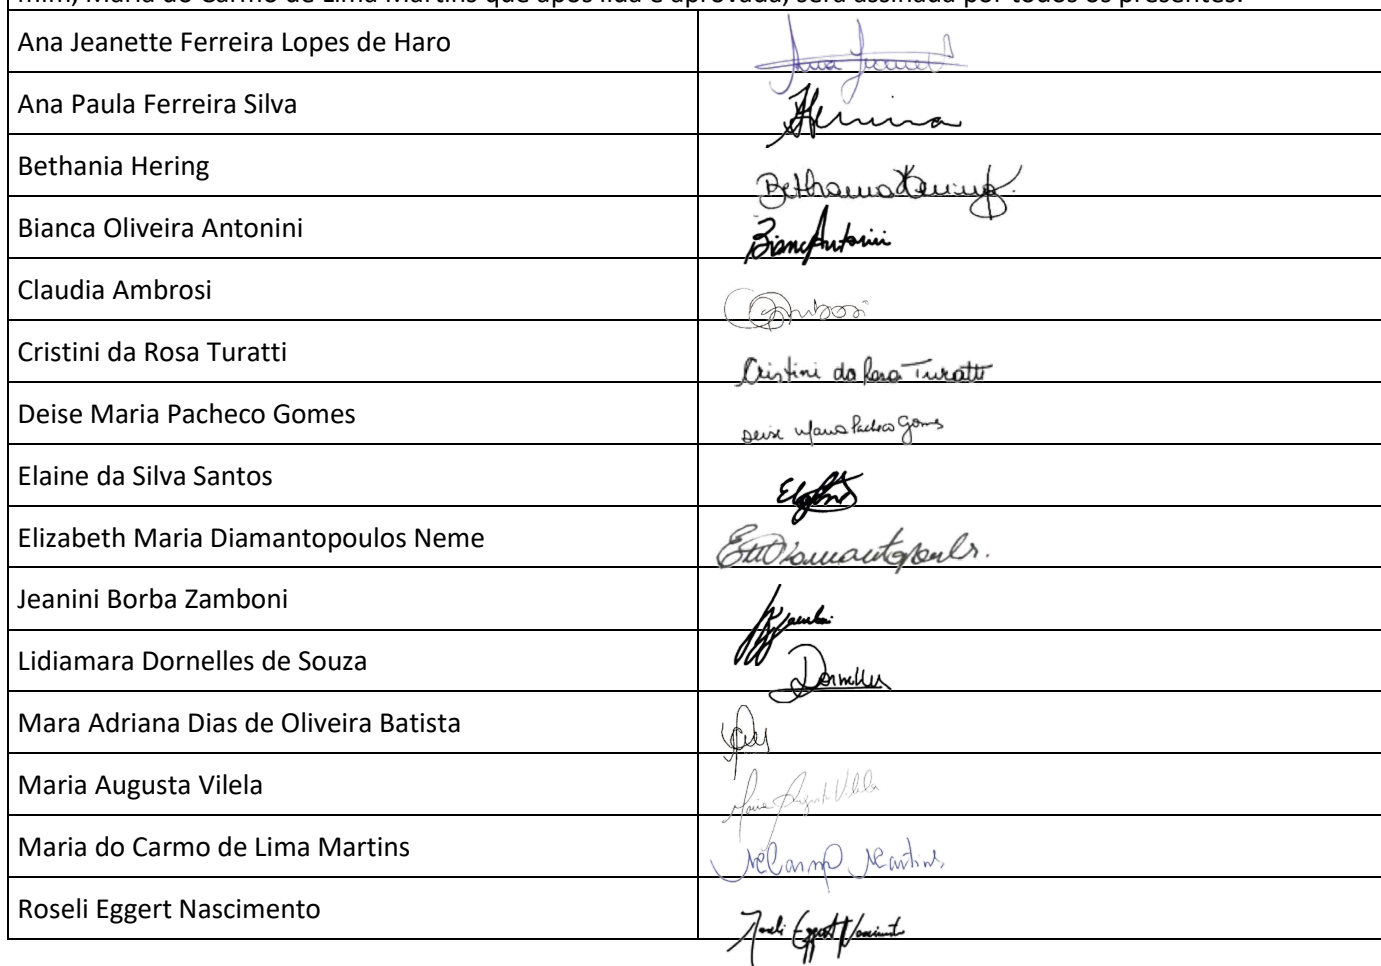 mim, Maria do Carmo de Lima Martins que após lida e aprovada, será assinada por todos os presentes.
Ana Jeanette Ferreira Lopes de Haro
Ana Paula Ferreira Silva
Bethania Hering Bethania Hering
Bianca Oliveira Antonini
Claudia Ambrosi
Cristini da Rosa Turatti Cristini da Rosa Turatti
Deise Maria Pacheco Gomes Deise Maria Pacheco Gomes
Elaine da Silva Santos
Elizabeth Maria Diamantopoulos Neme
Jeanini Borba Zamboni
Lidiamara Dornelles de Souza Dornelles
Mara Adriana Dias de Oliveira Batista
Maria Augusta Vilela Maria Augusta Vilela
Maria do Carmo de Lima Martins
Roseli Eggert Nascimento Roseli Eggert Nascimento